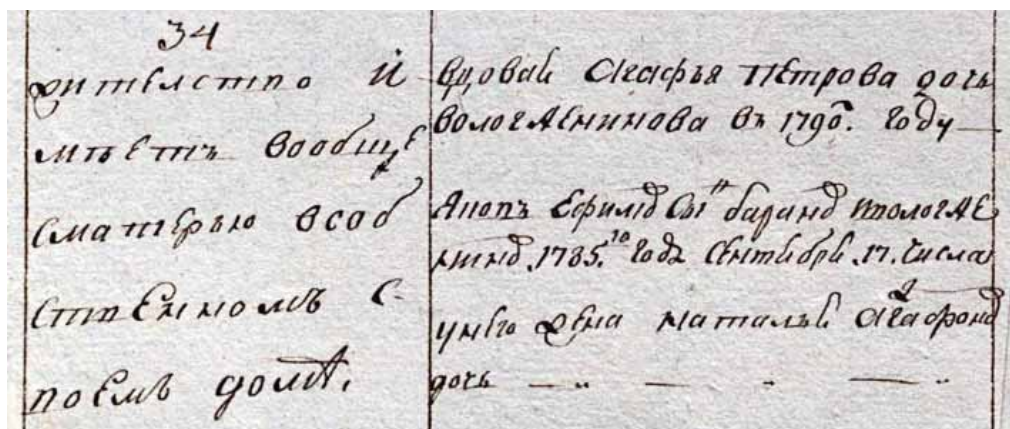 34
жителство и
мѣетъ вообще
сматерью всоб
ственномъ с
воемъ домѣ.
вдовая Агафья Петрова дочь
Вологженинова въ 1790. году
Ефимъ Сынъ
1785.го года Сентября .17. числа
унего жена наталья Агафонова
дочь — „ — „ — „